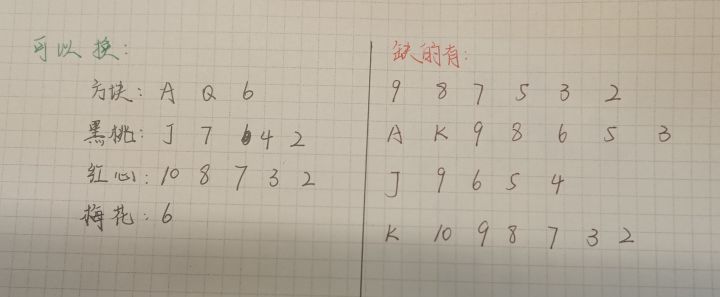 可以换: 缺的有:
方块: A Q 6 9 8 7 5 3 2
黑桃: J 7 6 4 2 A K 9 8 6 5 3
红心: 10 8 7 3 2 J 9 6 5 4
梅花: 6 K 10 9 8 7 3 2